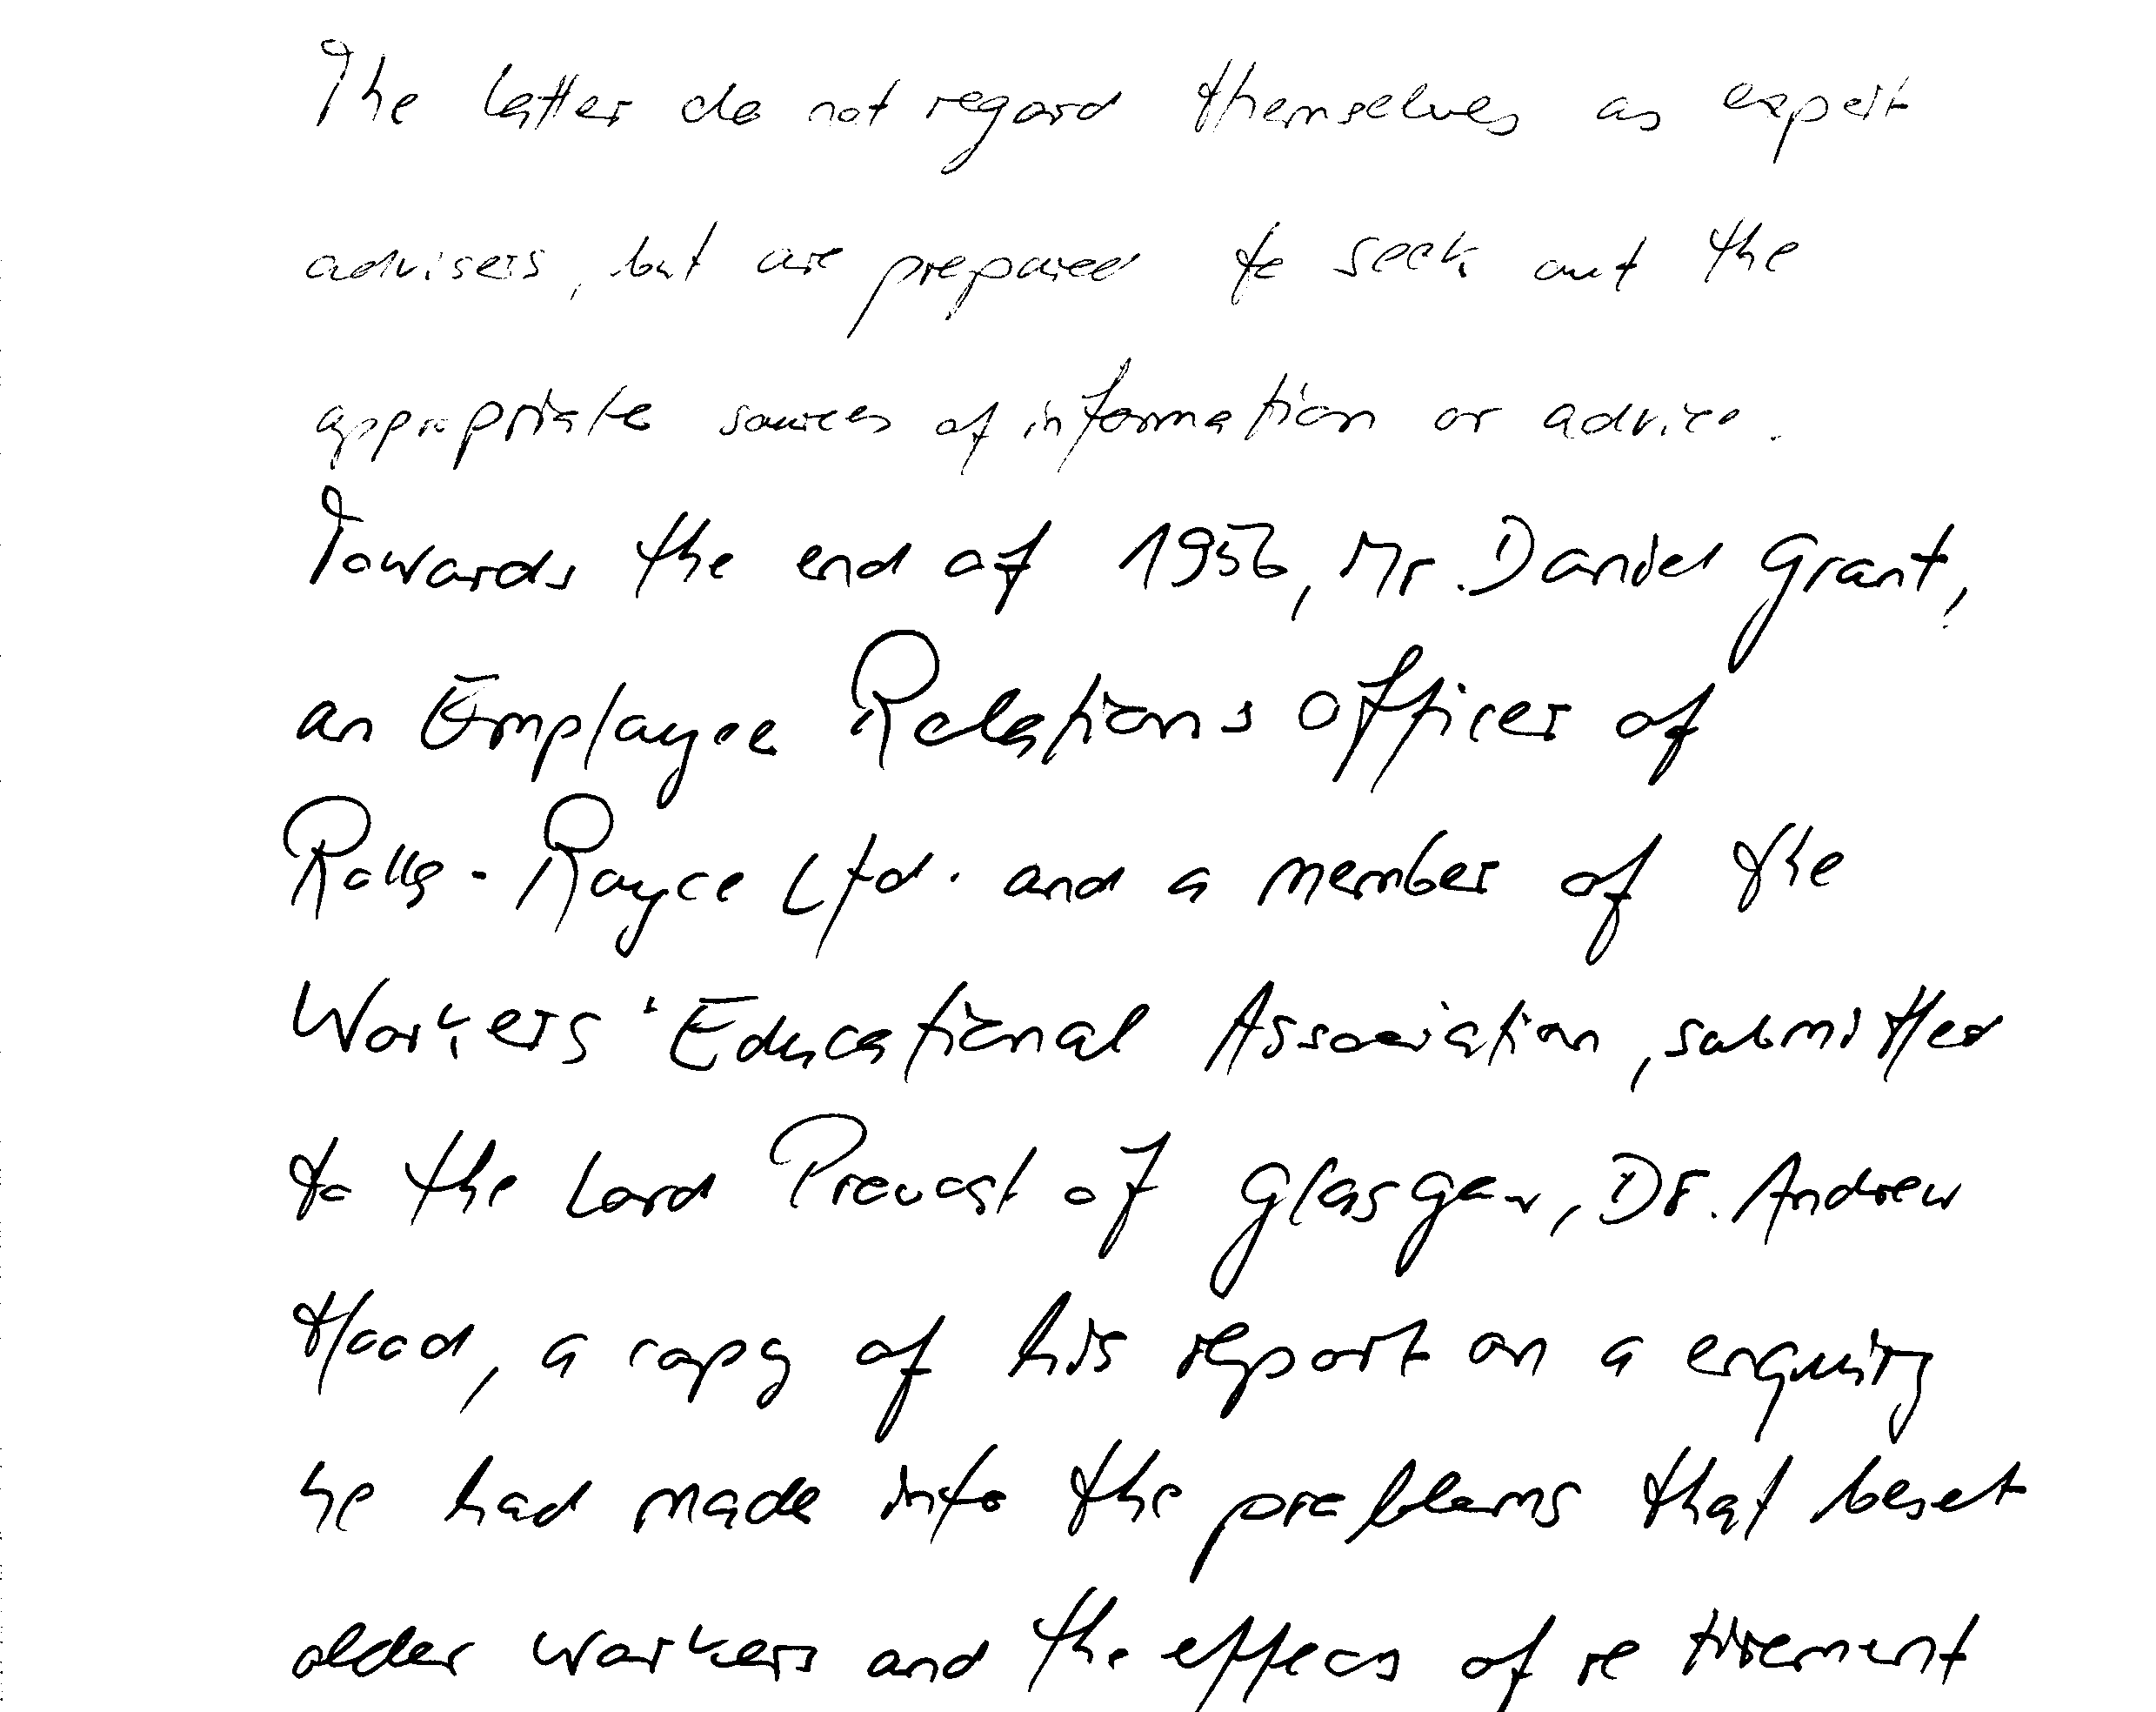 The latter do not regard themselves as expert
advisers, but are prepared to seek out the
appropriate sources of information or advice.
Towards the end of 1956, Mr. Daniel Grant,
an Employee Relations Officer of
Rolls-Royce Ltd. and a member of the
Workers' Educational Association, submitted
to the Lord Provost of Glasgow, Dr. Andrew
Hood, a copy of his report on a enquiry
he had made into the problems that beset
older workers and the effecs of retirement